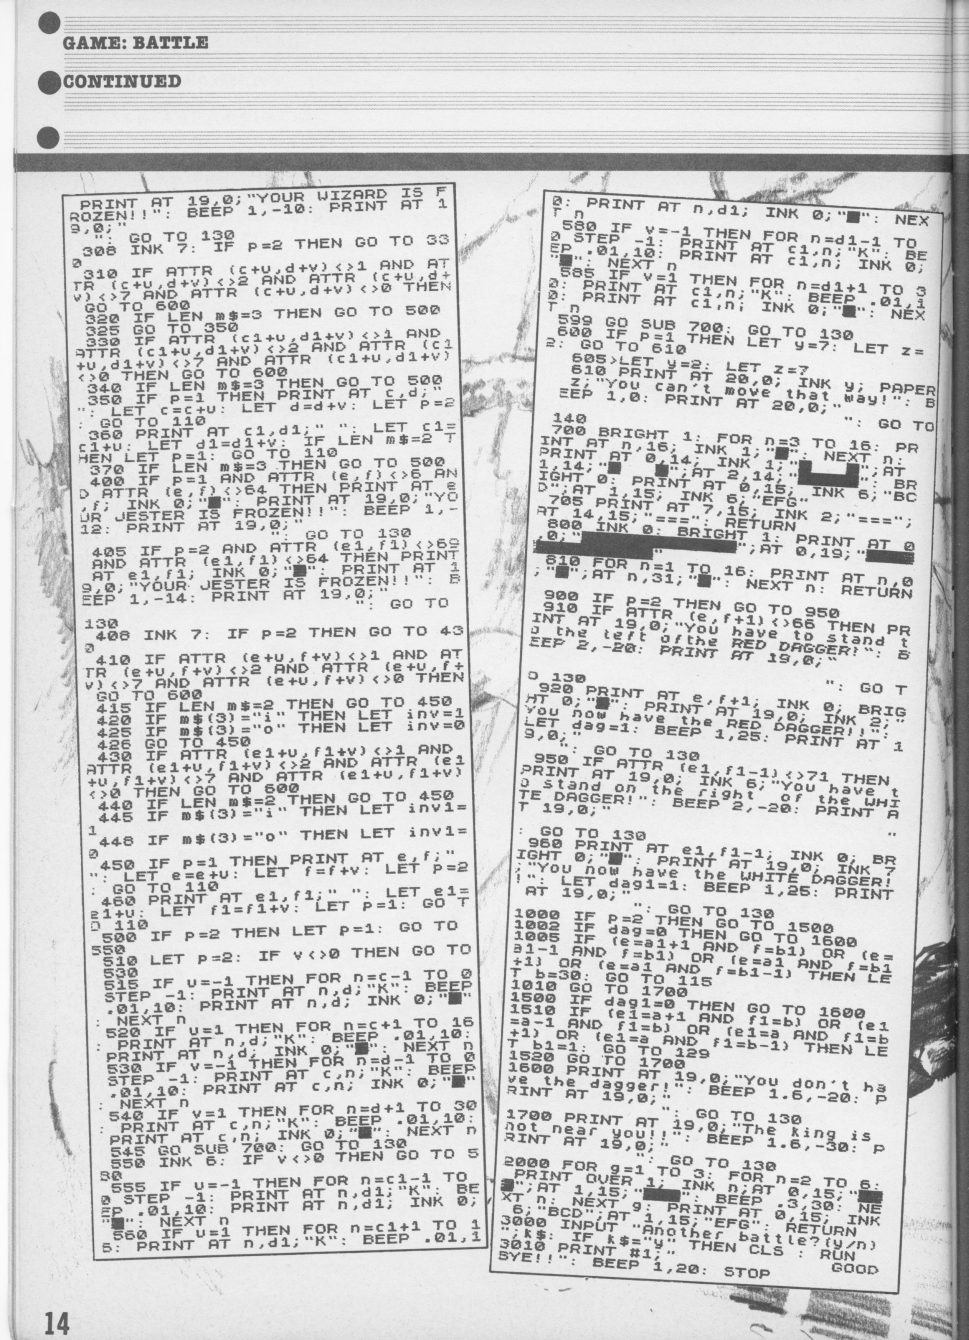 GAME: BATTLE
CONTINUED
PRINT AT 19,0;"YOUR WIZARD IS F
ROZEN!!": BEEP 1,-10: PRINT AT 1
9,0;"
": GO TO 130
308 INK 7: IF p=2 THEN GO TO 33
0
310 IF ATTR (c+u,d+v)<>1 AND AT
TR (c+u,d+v)<>2 AND ATTR (c+u,d+
v)<>7 AND ATTR (c+u,d+v)<>0 THEN
GO TO 600
320 IF LEN m$=3 THEN GO TO 500
325 GO TO 350
330 IF ATTR (c1+u,d1+v)<>1 AND
ATTR (c1+u,d1+v)<>2 AND ATTR (c1
+u,d1+v)<>7 AND ATTR (c1+u,d1+v)
<>0 THEN GO TO 600
340 IF LEN m$=3 THEN GO TO 500
350 IF p=1 THEN PRINT AT c,d;"
": LET c=c+u: LET d=d+v: LET p=2
: GO TO 110
360 PRINT AT c1,d1;" ": LET c1=
c1+u: LET d1=d1+v: IF LEN m$=2 T
HEN LET p=1: GO TO 110
370 IF LEN m$=3 THEN GO TO 500
400 IF p=1 AND ATTR (e,f)<>6 AN
D ATTR (e,f)<>64 THEN PRINT AT e
,f; INK 0;"■": PRINT AT 19,0;"YO
UR JESTER IS FROZEN!!": BEEP 1,-
12: PRINT AT 19,0;"
": GO TO 130
405 IF p=2 AND ATTR (e1,f1)<>69
AND ATTR (e1,f1)<>64 THEN PRINT
AT e1,f1; INK 0;"■": PRINT AT 1
9,0;"YOUR JESTER IS FROZEN!!": B
EEP 1,-14: PRINT AT 19,0;"
": GO TO
130
408 INK 7: IF p=2 THEN GO TO 43
0
410 IF ATTR (e+u,f+v)<>1 AND AT
TR (e+u,f+v)<>2 AND ATTR (e+u,f+
v)<>7 AND ATTR (e+u,f+v)<>0 THEN
GO TO 600
415 IF LEN m$=2 THEN GO TO 450
420 IF m$(3)="i" THEN LET inv=1
425 IF m$(3)="o" THEN LET inv=0
426 GO TO 450
430 IF ATTR (e1+u,f1+v)<>1 AND
ATTR (e1+u,f1+v)<>2 AND ATTR (e1
+u,f1+v)<>7 AND ATTR (e1+u,f1+v)
<>0 THEN GO TO 600
440 IF LEN m$=2 THEN GO TO 450
445 IF m$(3)="i" THEN LET inv1=
1
446 IF m$(3)="o" THEN LET inv1=
0
450 IF p=1 THEN PRINT AT e,f;"
": LET e=e+u: LET f=f+v: LET p=2
: GO TO 110
460 PRINT AT e1,f1;" ": LET e1=
e1+u: LET f1=f1+v: LET p=1: GO T
O 110
500 IF p=2 THEN LET p=1: GO TO
550
510 LET p=2: IF v<>0 THEN GO TO
530
515 IF u=-1 THEN FOR n=c-1 TO 0
STEP -1: PRINT AT n,d;"K": BEEP
.01,10: PRINT AT n,d; INK 0;"■"
: NEXT n
520 IF u=1 THEN FOR n=c+1 TO 16
: PRINT AT n,d;"K": BEEP .01,10:
PRINT AT n,d; INK 0;"■": NEXT n
530 IF v=-1 THEN FOR n=d-1 TO 0
STEP -1: PRINT AT c,n;"K": BEEP
.01,10: PRINT AT c,n; INK 0;"■"
: NEXT n
540 IF v=1 THEN FOR n=d+1 TO 30
: PRINT AT c,n;"K": BEEP .01,10:
PRINT AT c,n; INK 0;"■": NEXT n
545 GO SUB 700: GO TO 130
550 INK 6: IF v<>0 THEN GO TO 5
80
555 IF u=-1 THEN FOR n=c1-1 TO
0 STEP -1: PRINT AT n,d1;"K": BE
EP .01,10: PRINT AT n,d1; INK 0;
"■": NEXT n
560 IF u=1 THEN FOR n=c1+1 TO 1
6: PRINT AT n,d1;"K": BEEP .01,1
0: PRINT AT n,d1; INK 0;"■": NEX
T n
580 IF v=-1 THEN FOR n=d1-1 TO
0 STEP -1: PRINT AT c1,n;"K": BE
EP .01,10: PRINT AT c1,n; INK 0;
"■": NEXT n
585 IF v=1 THEN FOR n=d1+1 TO 3
0: PRINT AT c1,n;"K": BEEP .01,1
0: PRINT AT c1,n; INK 0;"■": NEX
T n
599 GO SUB 700: GO TO 130
600 IF p=1 THEN LET y=7: LET z=
2: GO TO 610
605>LET y=2: LET z=7
610 PRINT AT 20,0; INK y; PAPER
z;"You can't move that way!": B
EEP 1,0: PRINT AT 20,0;"
": GO TO
140
700 BRIGHT 1: FOR n=3 TO 16: PR
INT AT n,16; INK 1;"■": NEXT n:
PRINT AT 0,14; INK 1;"■■■■";AT
1,14;"■  ■";AT 2,14;"■■■■": BR
IGHT 0: PRINT AT 0,15; INK 6;"BC
D";AT 1,15; INK 6;"EFG"
705 PRINT AT 7,15; INK 2;"===";
AT 14,15;"===": RETURN
800 INK 0: BRIGHT 1: PRINT AT 0
,0;"■■■■■■■■■■■■■";AT 0,19;"■■■■
■■■■■■■■■"
810 FOR n=1 TO 16: PRINT AT n,0
;"■";AT n,31;"■": NEXT n: RETURN
900 IF p=2 THEN GO TO 950
910 IF ATTR (e,f+1)<>66 THEN PR
INT AT 19,0;"You have to stand t
o the left ofthe RED DAGGER!": B
EEP 2,-20: PRINT AT 19,0;"
": GO T
O 130
920 PRINT AT e,f+1; INK 0; BRIG
HT 0;"■": PRINT AT 19,0; INK 2;"
You now have the RED DAGGER!!":
LET dag=1: BEEP 1,25: PRINT AT 1
9,0;"
": GO TO 130
950 IF ATTR (e1,f1-1)<>71 THEN
PRINT AT 19,0; INK 6;"You have t
o stand on the right  of the WHI
TE DAGGER!": BEEP 2,-20: PRINT A
T 19,0;"
"
: GO TO 130
960 PRINT AT e1,f1-1; INK 0; BR
IGHT 0;"■": PRINT AT 19,0; INK 7
;"You now have the WHITE DAGGER!
!": LET dag1=1: BEEP 1,25: PRINT
AT 19,0;"
": GO TO 130
1000 IF p=2 THEN GO TO 1500
1002 IF dag=0 THEN GO TO 1600
1005 IF (e=a1+1 AND f=b1) OR (e=
a1-1 AND f=b1) OR (e=a1 AND f=b1
+1) OR (e=a1 AND f=b1-1) THEN LE
T b=30: GO TO 115
1010 GO TO 1700
1500 IF dag1=0 THEN GO TO 1600
1510 IF (e1=a+1 AND f1=b) OR (e1
=a-1 AND f1=b) OR (e1=a AND f1=b
+1) OR (e1=a AND f1=b-1) THEN LE
T b1=1: GO TO 129
1520 GO TO 1700
1600 PRINT AT 19,0;"You don't ha
ve the dagger!": BEEP 1.6,-20: P
RINT AT 19,0;"
": GO TO 130
1700 PRINT AT 19,0;"The king is
not near you!!": BEEP 1.6,-30: P
RINT AT 19,0;"
": GO TO 130
2000 FOR g=1 TO 3: FOR n=2 TO 6:
PRINT OVER 1; INK n;AT 0,15;"■■
■";AT 1,15;"■■■": BEEP .3,30: NE
XT n: NEXT g: PRINT AT 0,15; INK
6;"BCD";AT 1,15;"EFG": RETURN
3000 INPUT "Another battle?(y/n)
";k$: IF k$="y" THEN CLS : RUN
3010 PRINT #1;"          GOOD
BYE!!": BEEP 1,20: STOP
14